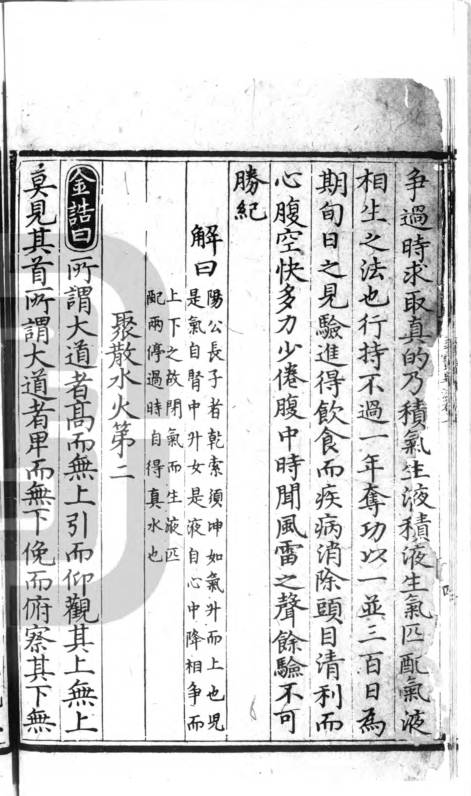 爭過時求取真的乃積氣生液積液生氣匹配氣液
相生之法也行持不過一年奪功以一並三百日為
期旬日之見驗進得飲食而疾病消除頭目清利而
心腹空快多力少倦腹中時聞風雷之聲餘驗不可
勝紀
解曰
陽公長子者乾索須坤如氣升而上也児
是氣自腎中升女是液自心中降相争而
上下之故閉氣而生液匹
配兩停過時自得真水也
聚散水火第二
金誥曰所謂大道者髙而無上引而仰觀其上無上
莫見其首所謂大道者卑而無下俛而俯察其下無